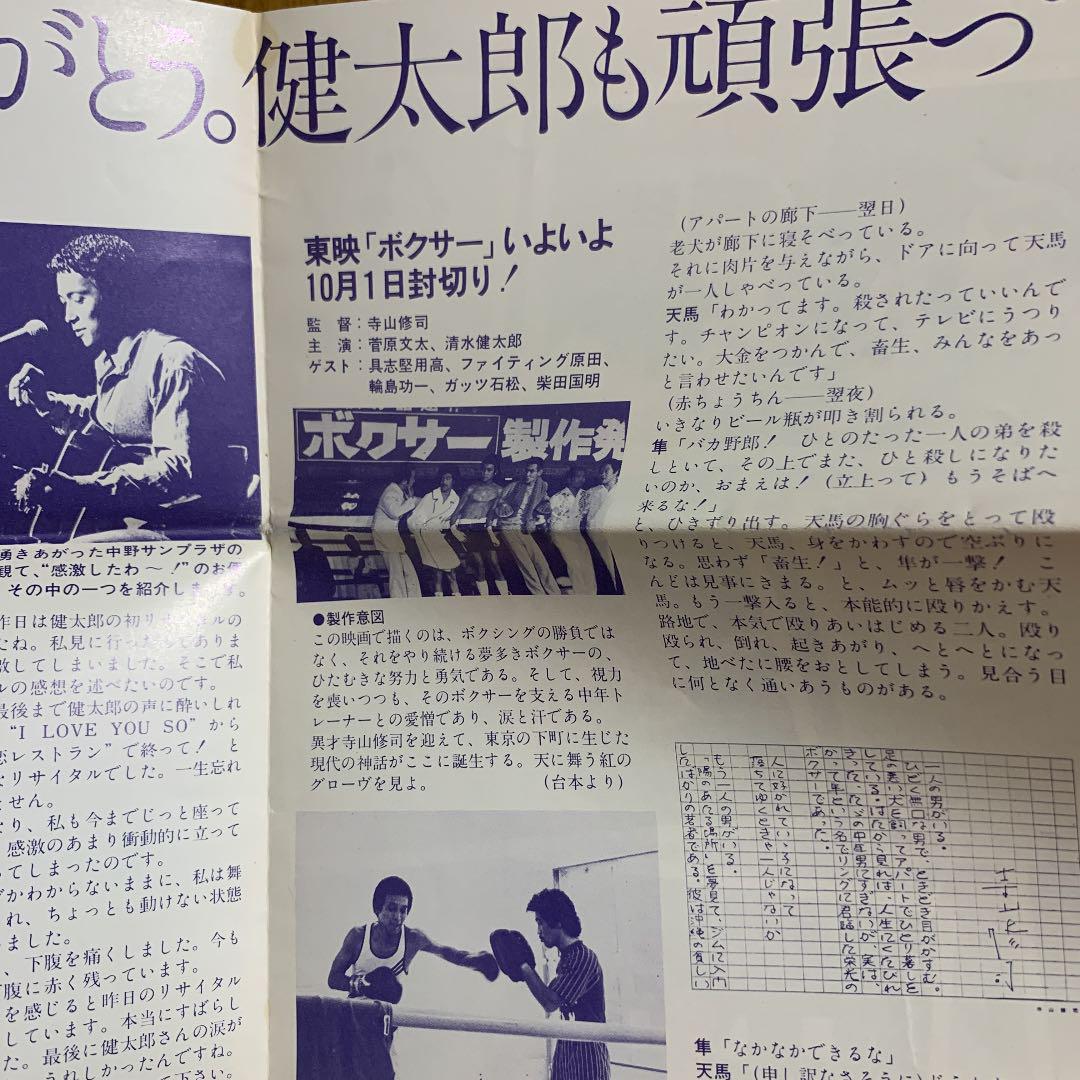 がとう。健太郎も頑張っ
東映「ボクサー」いよいよ
10月1日封切り！
監　督：寺山修司
主　演：菅原文太、清水健太郎
ゲスト：具志堅用高、ファイティング原田、
輪島功一、ガッツ石松、柴田国明
ボクサー 製作発
●製作意図
この映画で描くのは、ボクシングの勝負では
なく、それをやり続ける夢多きボクサーの、
ひたむきな努力と勇気である。そして、視力
を喪いつつも、そのボクサーを支える中年ト
レーナーとの愛憎であり、涙と汗である。
異才寺山修司を迎えて、東京の下町に生じた
現代の神話がここに誕生する。天に舞う紅の
グローヴを見よ。　　　　（台本より）
勇きあがった中野サンプラザの
観て、“感激したわ〜！”のお便
その中の一つを紹介します。
昨日は健太郎の初リサイタルの
たね。私見に行ったんでありま
激してしまいました。そこで私
ルの感想を述べたいのです。
最後まで健太郎の声に酔いしれ
“I LOVE YOU SO”から
恋レストラン”で終って！　と
なリサイタルでした。一生忘れ
ません。
り、私も今までじっと座って
感激のあまり衝動的に立って
ってしまったのです。
かわからないままに、私は舞
れ、ちょっとも動けない状態
いました。
、下腹を痛くしました。今も
下腹に赤く残っています。
を感じると昨日のリサイタル
しています。本当にすばらし
た。最後に健太郎さんの涙が
うれしかったんですね。
て下さい。
（アパートの廊下――翌日）
老犬が廊下に寝そべっている。
それに肉片を与えながら、ドアに向って天馬
が一人しゃべっている。
天馬「わかってます。殺されたっていいんで
す。チャンピオンになって、テレビにうつり
たい。大金をつかんで、畜生、みんなをあっ
と言わせたいんです」
（赤ちょうちん――翌夜）
いきなりビール瓶が叩き割られる。
隼「バカ野郎！　ひとのたった一人の弟を殺
しといて、その上でまた、ひと殺しになりた
いのか、おまえは！（立上って）もうそばへ
来るな！」
と、ひきずり出す。天馬の胸ぐらをとって殴
りつけると、天馬、身をかわすので空ぶりに
なる。思わず「畜生！」と、隼が一撃！　こ
んどは見事にきまる。と、ムッと唇をかむ天
馬。もう一撃入ると、本能的に殴りかえす。
路地で、本気で殴りあいはじめる二人。殴り
殴られ、倒れ、起きあがり、へとへとになっ
て、地べたに腰をおとしてしまう。見合う目
に何となく通いあうものがある。
一人の男がいる。
ひどく無口な男で、ときどき目がかすむ。
足の悪い犬を飼ってアパートでひとり暮しを
している。はたから見れば、人生にくたびれ
きった、ただの中年男にすぎないが、実は、
かつて隼という名でリングに君臨した栄光の
ボクサーであった。
人に好かれていい子になって
落ちてゆくときゃ一人じゃないか
もう一人の男がいる。
“陽のあたる場所”を夢見て、ジムに入門
したばかりの若者である。彼は沖縄の貧しい
隼「なかなかできるな」
天馬「（申し訳なさそうに）